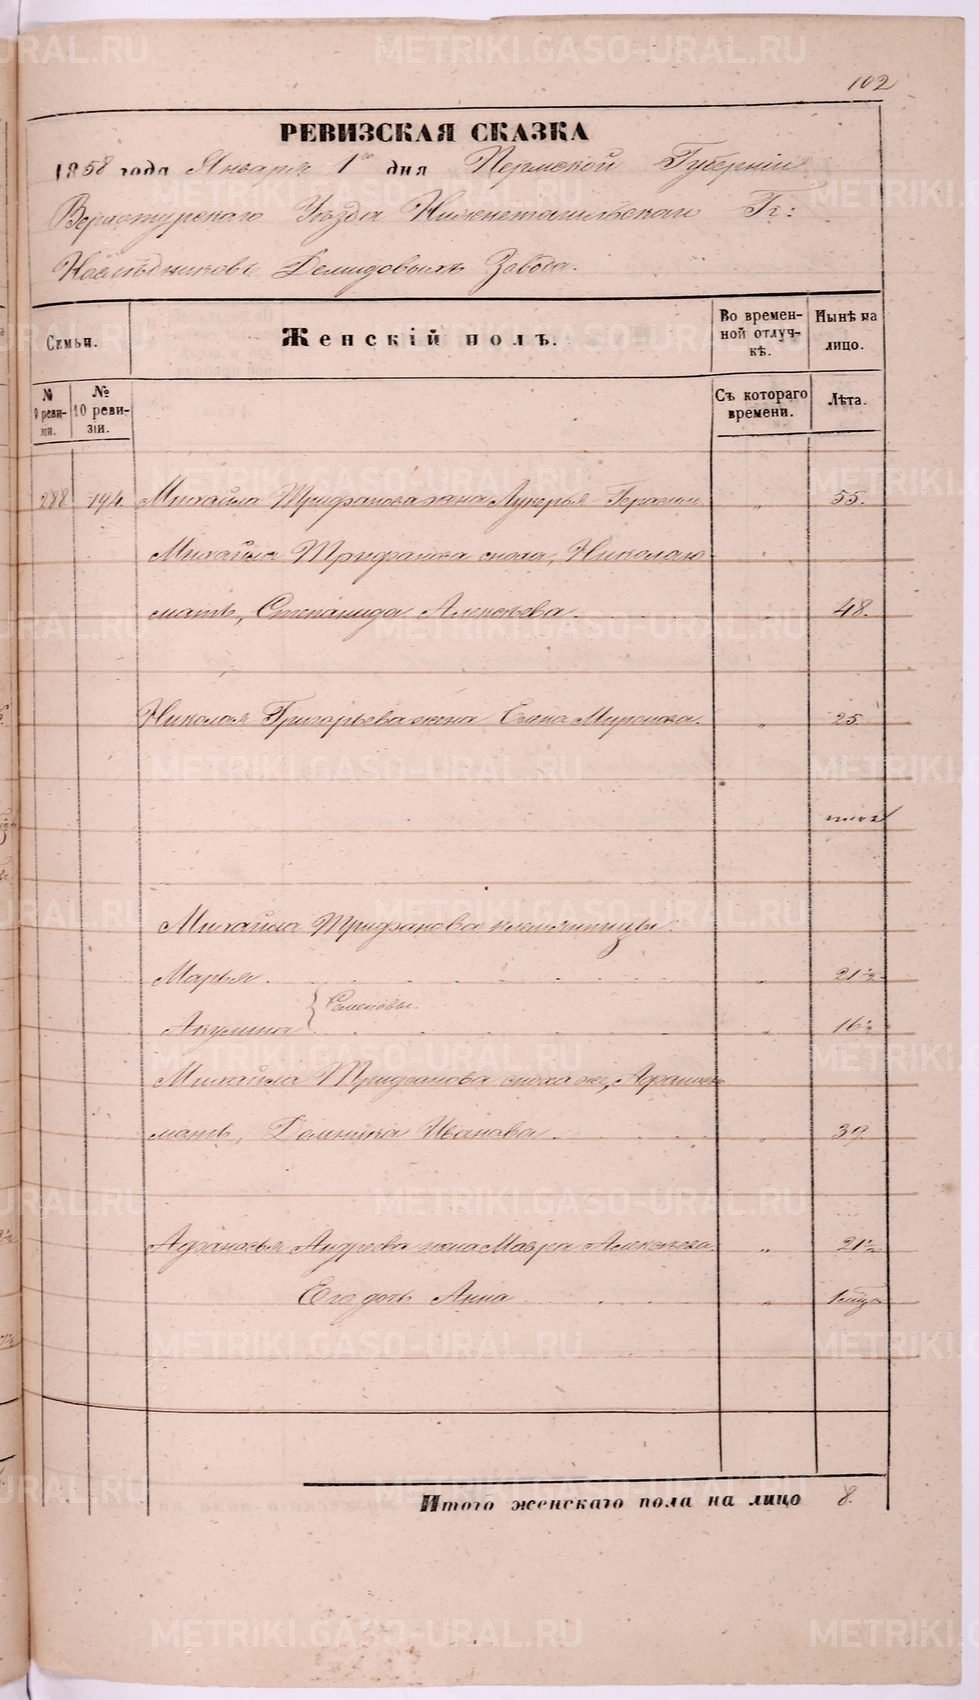 102
РЕВИЗСКАЯ СКАЗКА
1858 года Января 1го дня Пермской Губерніи
Верхотурскаго Уѣзда Нижнетагильскаго Гг:
Наслѣдниковъ Демидовыхъ Завода.
Семьи.
Женскій полъ.
Во времен-
ной отлуч-
кѣ.
Нынѣ на
лицо.
№
9 реви-
зіи.
№
10 реви-
зіи.
Съ котораго
времени.
Лѣта.
288 194. Михайла Трифанова жена Лукерья Герасим. „ 55.
Михайла Трифанова сноха, Николаю
мать, Степанида Алексѣева „ 48.
Николая Григорьева жена Елена Миронова. „ 25
Михайла Трифанова племянницы
Марья. „ 21½
Семеновы.
Акулина „ 16½
Михайла Трифанова сноха же, Афанасью
мать, Домника Иванова „ 39
Афанасья Андреева жена Мавра Алексѣева „ 21½
Его дочь Анна „ 1 мѣс
Итого женскаго пола на лицо 8.
METRIKI.GASO-URAL.RU